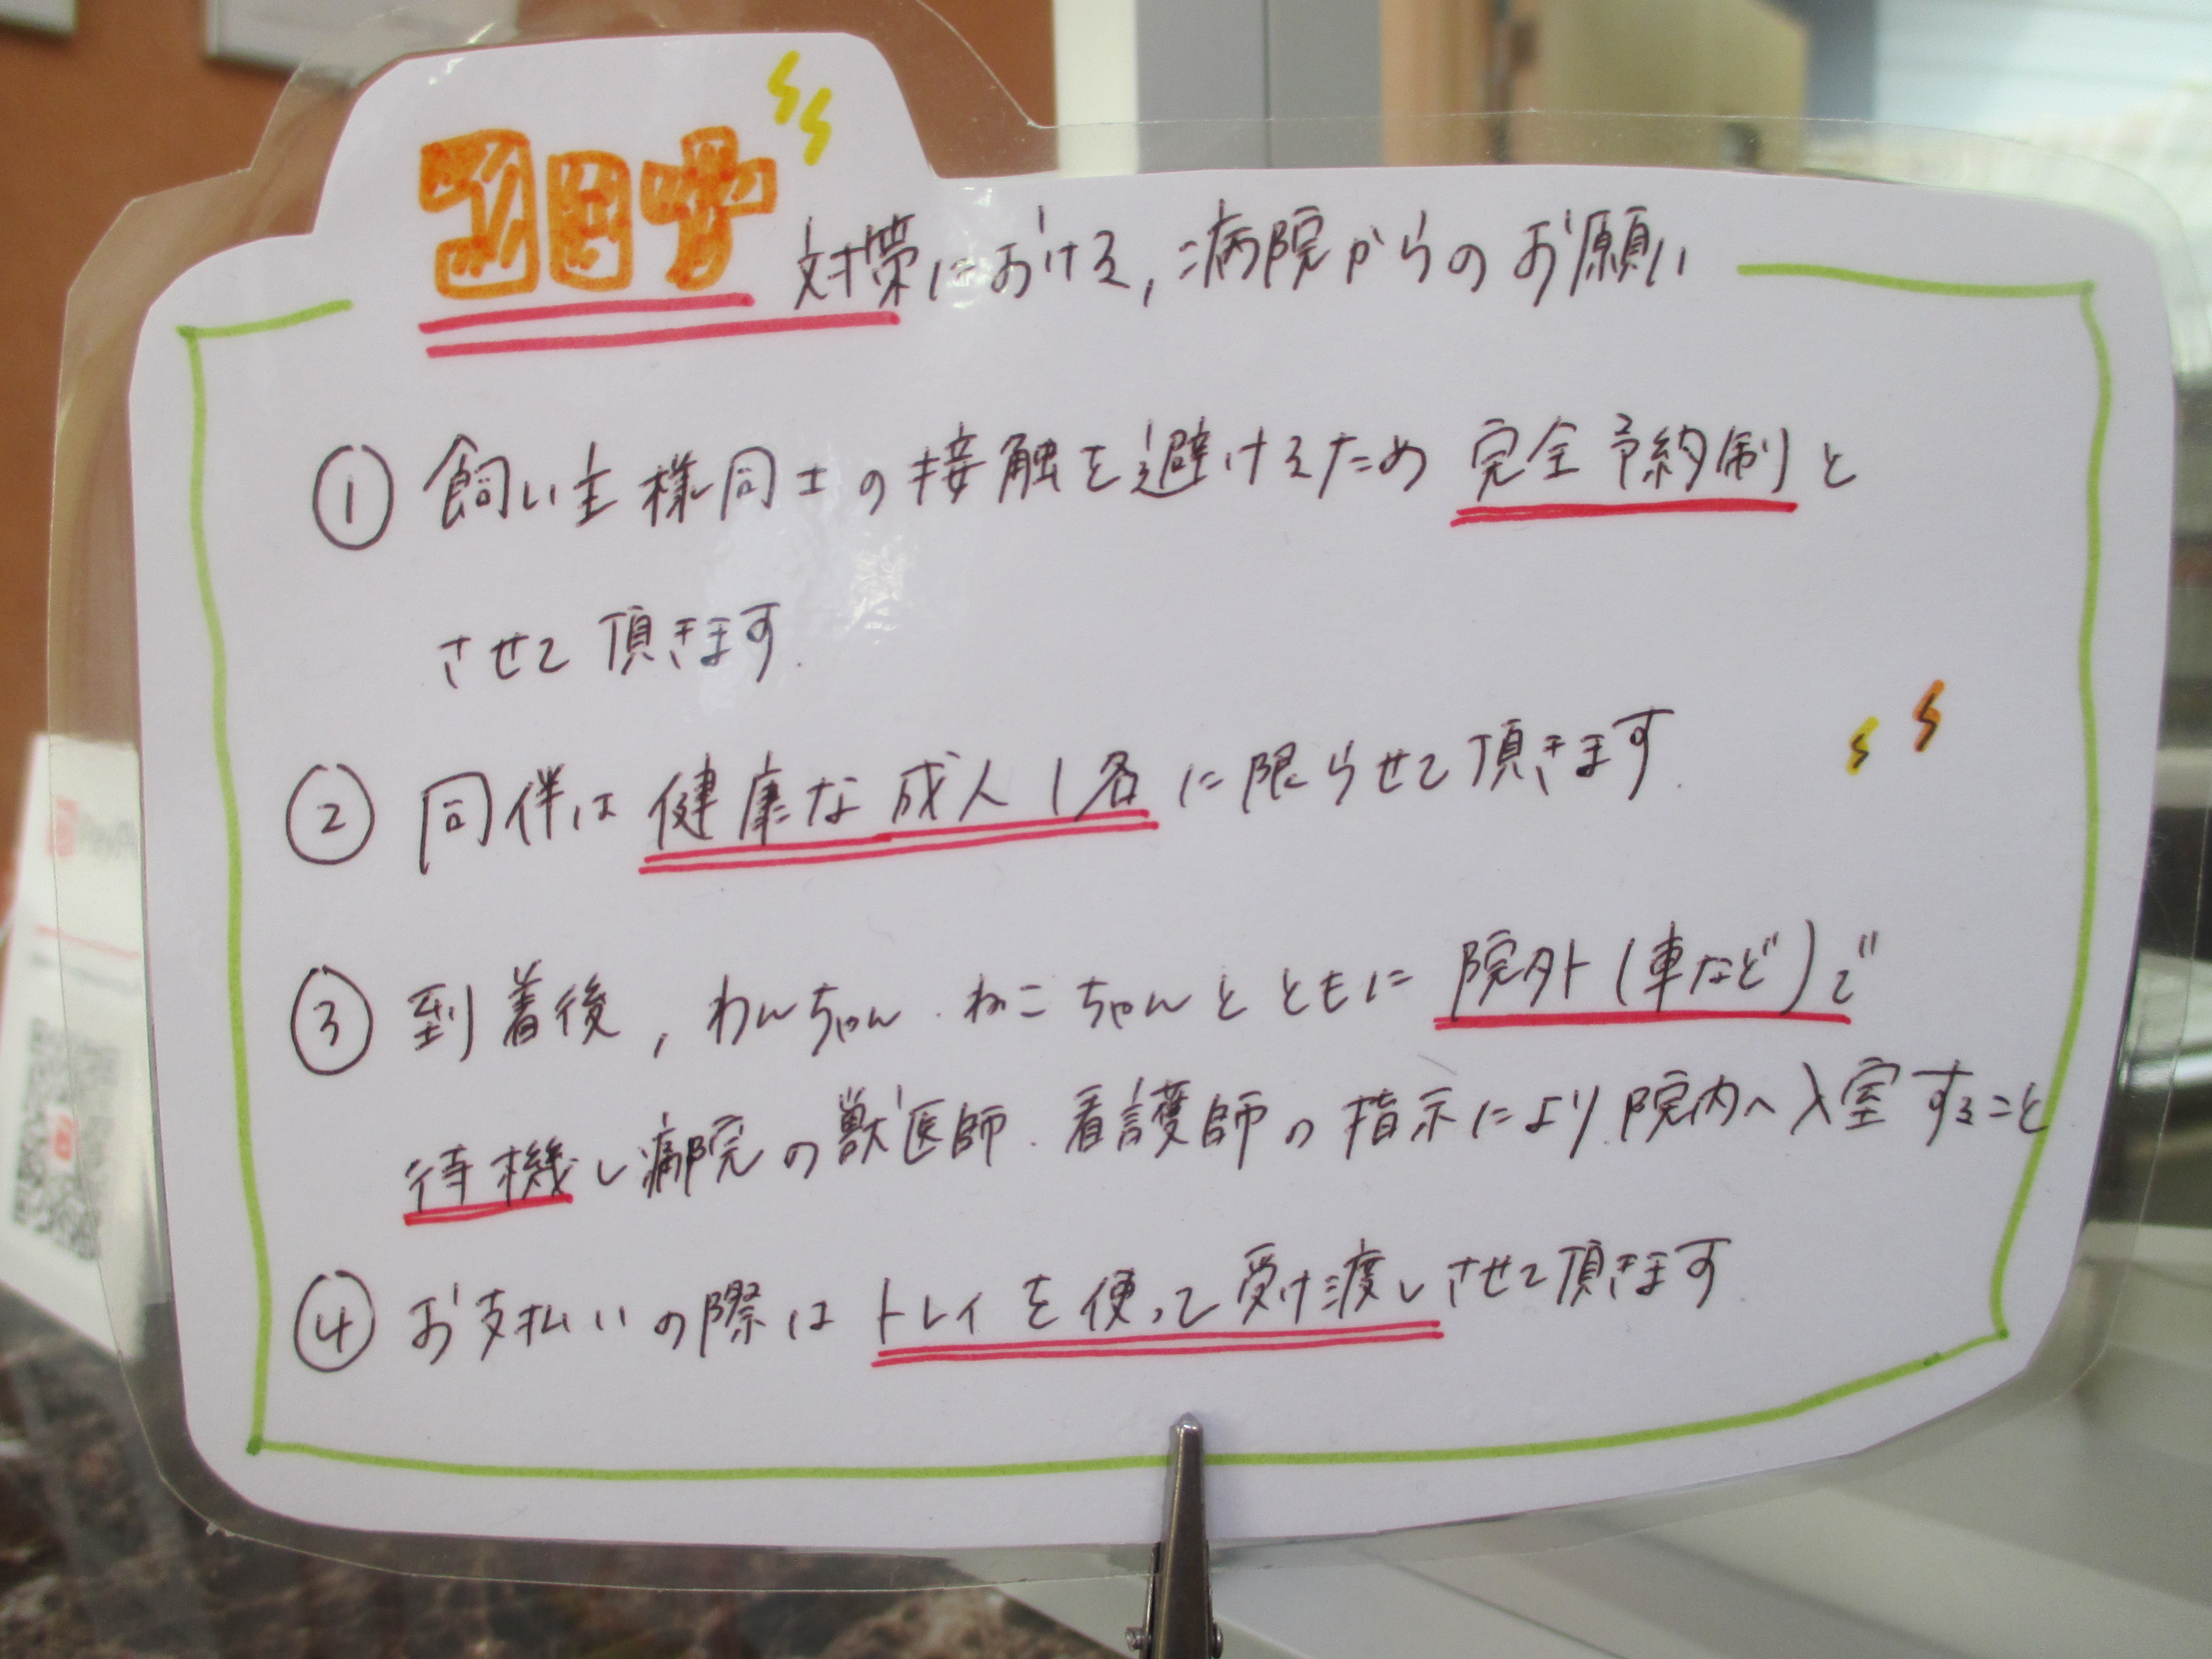 コロナ対策における，病院からのお願い
① 飼い主様同士の接触を避けるため 完全予約制と
させて頂きます.
② 同伴は健康な成人1名に限らせて頂きます.
③ 到着後，わんちゃん.ねこちゃんとともに院外(車など)で
待機し病院の獣医師.看護師の指示により.院内へ入室すること
④ お支払いの際はトレイを使って受け渡しさせて頂きます.